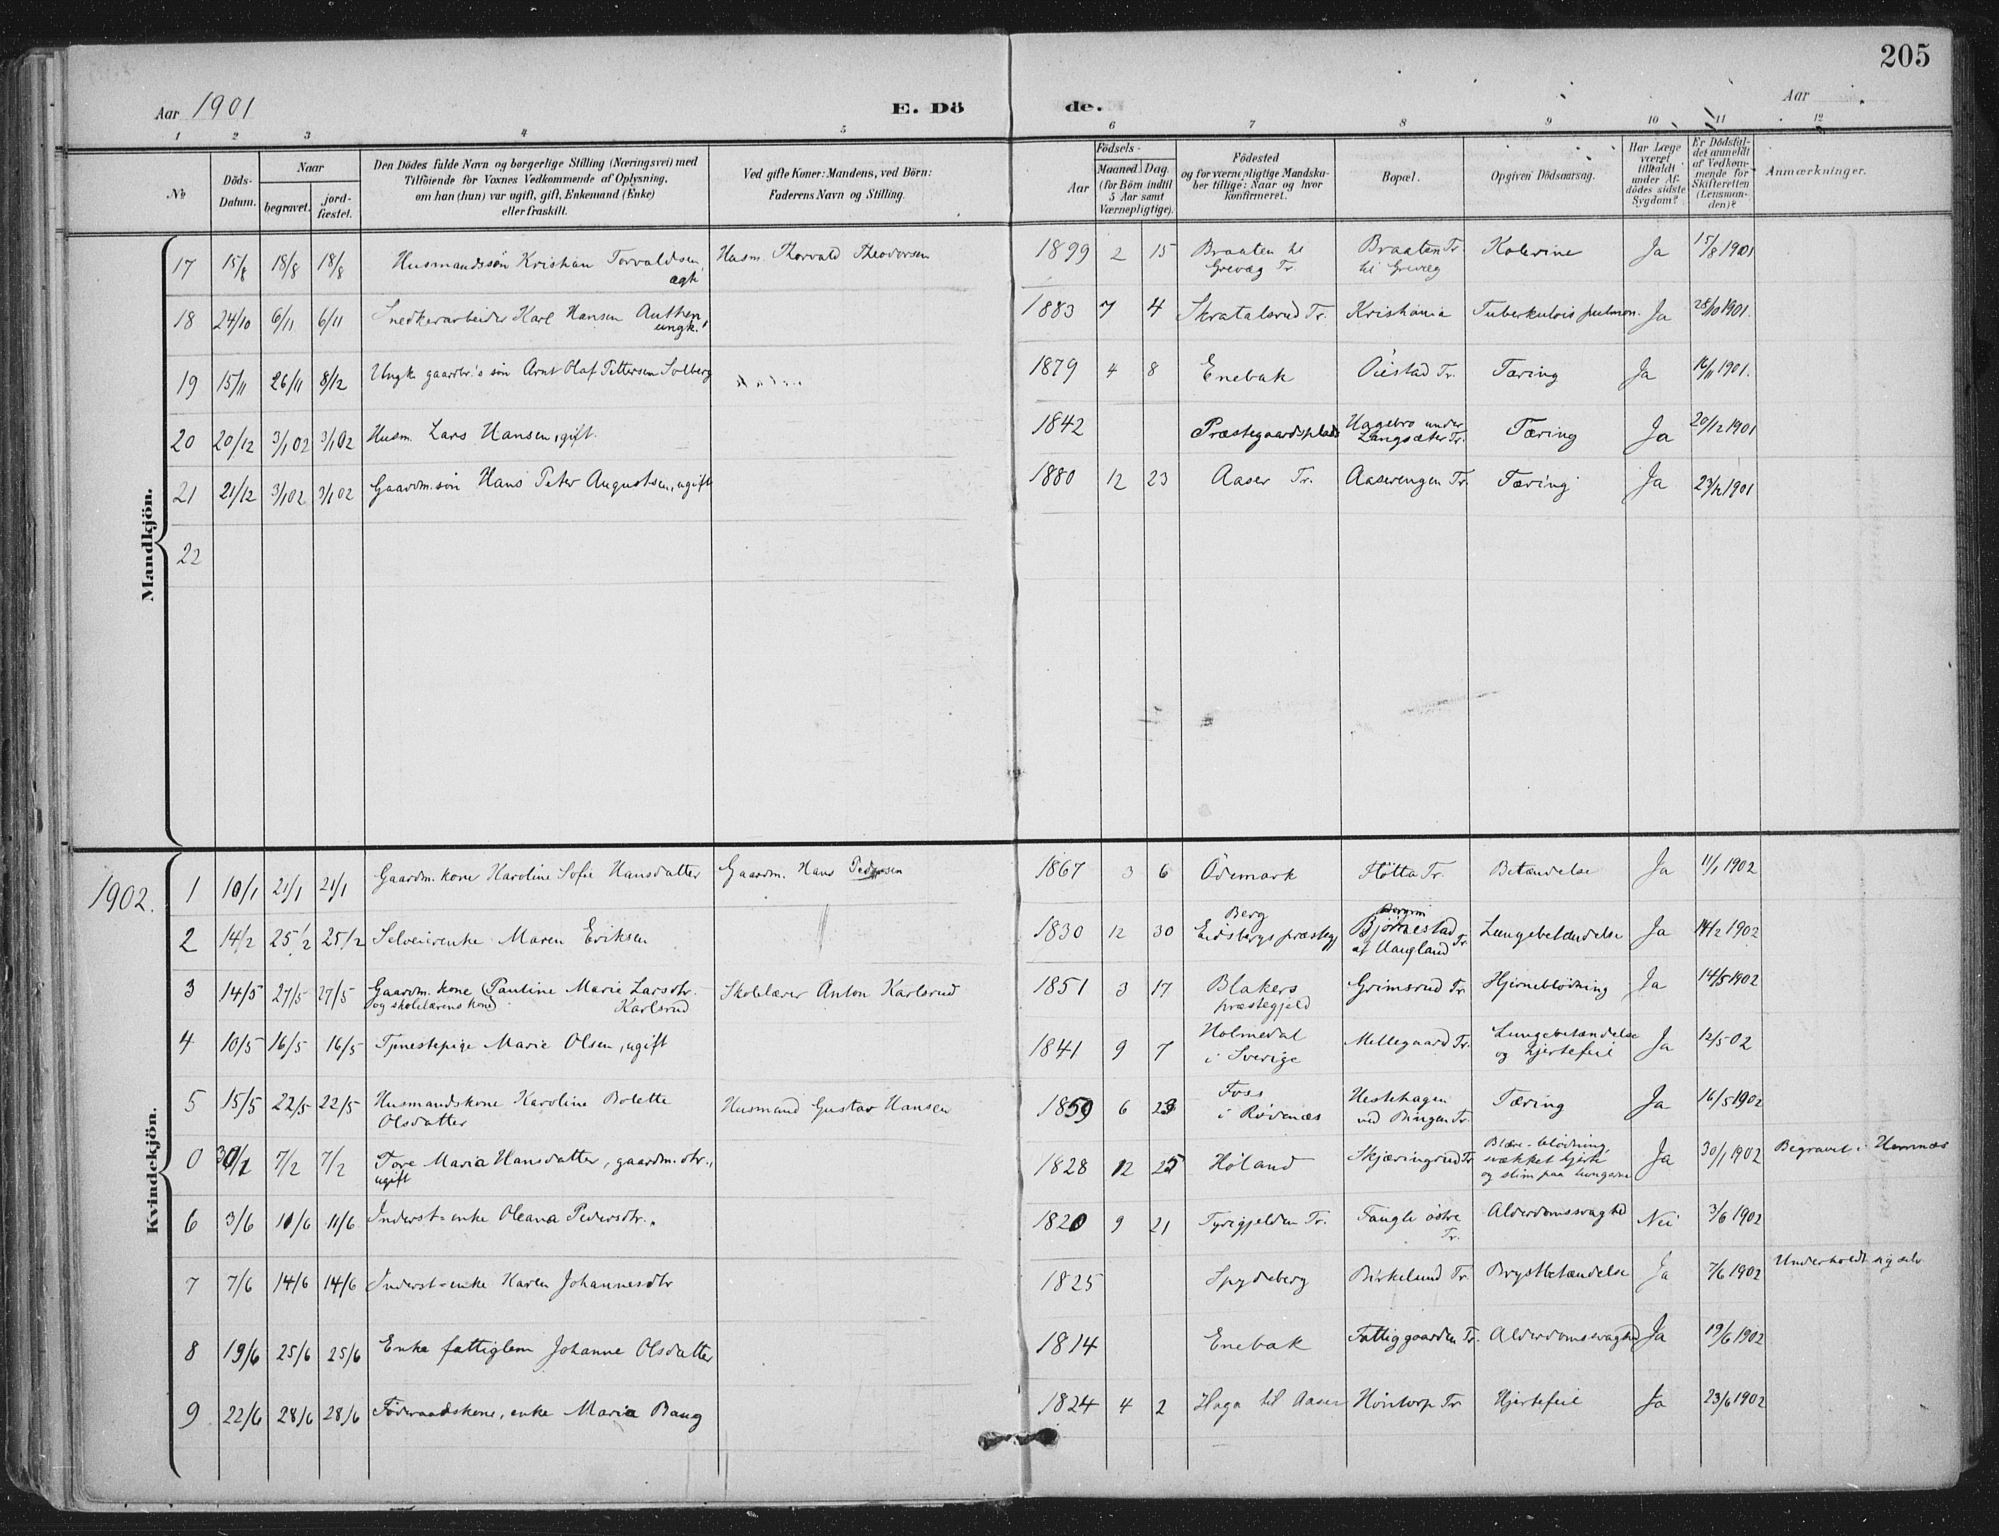 205
Aar 1901
E. Dö
de.
Aar
1 2 3 4 5 6 7 8 9 10 11 12
No
Döds-Datum.
Naar
begravet.
jord-fæstet.
Den Dödes fulde Navn og borgerlige Stilling (Næringsvei) med
Tilföiende for Voxnes Vedkommende af Oplysning,
om han (hun) var ugift, gift, Enkemand (Enke)
eller fraskilt.
Ved gifte Koner: Mandens, ved Börn:
Faderens Navn og Stilling.
Födsels-
Aar
Maaned. Dag.
(for Börn indtil
5 Aar samt
Værnepligtige).
Födested
og for værnepligtige Mandska-
ber tillige: Naar og hvor
konfirmeret.
Bopæl.
Opgiven Dödsaarsag.
Har Læge
været
tilkaldt
under Af-
dödes sidste
Sygdom?
Er Dödsfal-
det anmeldt
af Vedkom-
mende for
Skifteretten
(Lensman-
den)?
Anmærkninger.
Mandkjön.
17 15/8 18/8 18/8 Husmandssøn Kristian Torvaldsen, ægte Husm. Thorvald Theodorsen 1899 2 15 Braaten til Grevæg Tr. Braaten Tr. til Grevæg Kolerine Ja 15/8 1901
18 24/10 6/11 6/11 Snedkerarbeider Karl Hansen Authen, ungk. 1883 7 4 Skratalsrud Tr. Kristiania Tuberkulois pulmon. Ja 28/10 1901.
19 15/11 26/11 8/12 Ungk. gaardbr.'s søn Arnt Olaf Pettersen Solberg 1879 4 8 Enebak Öiestad Tr. Tæring Ja 16/11 1901.
20 20/12 3/1 02 3/1 02 Husm. Lars Hansen, gift. 1842 Præstegaardsplads Hagebro under Langsæter Tr. Tæring Ja 20/12 1901
21 21/12 3/1 02 3/1 02 Gaardm.søn Hans Peter Augustsen, ugift 1880 12 23 Aaser Tr. Aaserengen Tr. Tæring Ja 23/12 1901
22
1902.
Kvindekjön.
1 10/1 21/1 21/1 Gaardm. kone Karoline Sofie Hansdatter Gaardm. Hans Pedersen 1867 3 6 Ödemark Høtta Tr. Betændelse Ja 11/1 1902
2 14/2 25/2 25/2 Selveierenke Maren Eriksen 1830 12 30 Berg Eidsbergs præstegj. Bjørnestad af Haugland Tr. Lungebetændelse Ja 14/2 1902
3 14/5 27/5 27/5 Gaardm. kone (og skolelærers kone) Pauline Marie Larsdtr. Karlsrud Skolelærer Anton Karlsrud 1851 3 17 Blakers præstegjeld Grimsrud Tr. Hjerneblødning Ja 14/5 1902
4 10/5 16/5 16/5 Tjenestepige Marie Olsen, ugift 1841 9 7 Holmedal i Sverige Mellegaard Tr. Lungebetændelse og hjertefeil Ja 12/5 02
5 15/5 22/5 22/5 Husmandskone Karoline Bolette Olsdatter Husmand Gustav Hansen 1859 6 23 Foss i Rødenæs Hestehagen ved Bingen Tr. Tæring Ja 16/5 1902
0 30/1 7/2 7/2 Tore Maria Hansdatter, gaardm.dtr., ugift 1828 12 25 Høland Skjæringrud Tr. Blære-blødning svækket hjerte og slim paa lungerne Ja 30/1 1902 Begravet i Hemnæs
6 3/6 11/6 11/6 Inderst-enke Oleana Pedersdtr. 1820 9 21 Tyrigjelden Tr. Fangle østre Tr. Alderdomssvaghed Nei 3/6 1902
7 7/6 14/6 14/6 Inderst-enke Karen Johannesdtr 1825 Spydeberg Birkelund Tr. Brystbetændelse Ja 7/6 1902 Underholdt sig selv
8 19/6 25/6 25/6 Enke fattiglem Johanne Olsdatter 1814 Enebak Fattiggaarden Tr. Alderdomssvaghed Ja 19/6 1902
9 22/6 28/6 28/6 Föderaadskone, enke Maria Baug 1824 4 2 Haga til Aaser Höntorp Tr. Hjertefeil Ja 23/6 1902